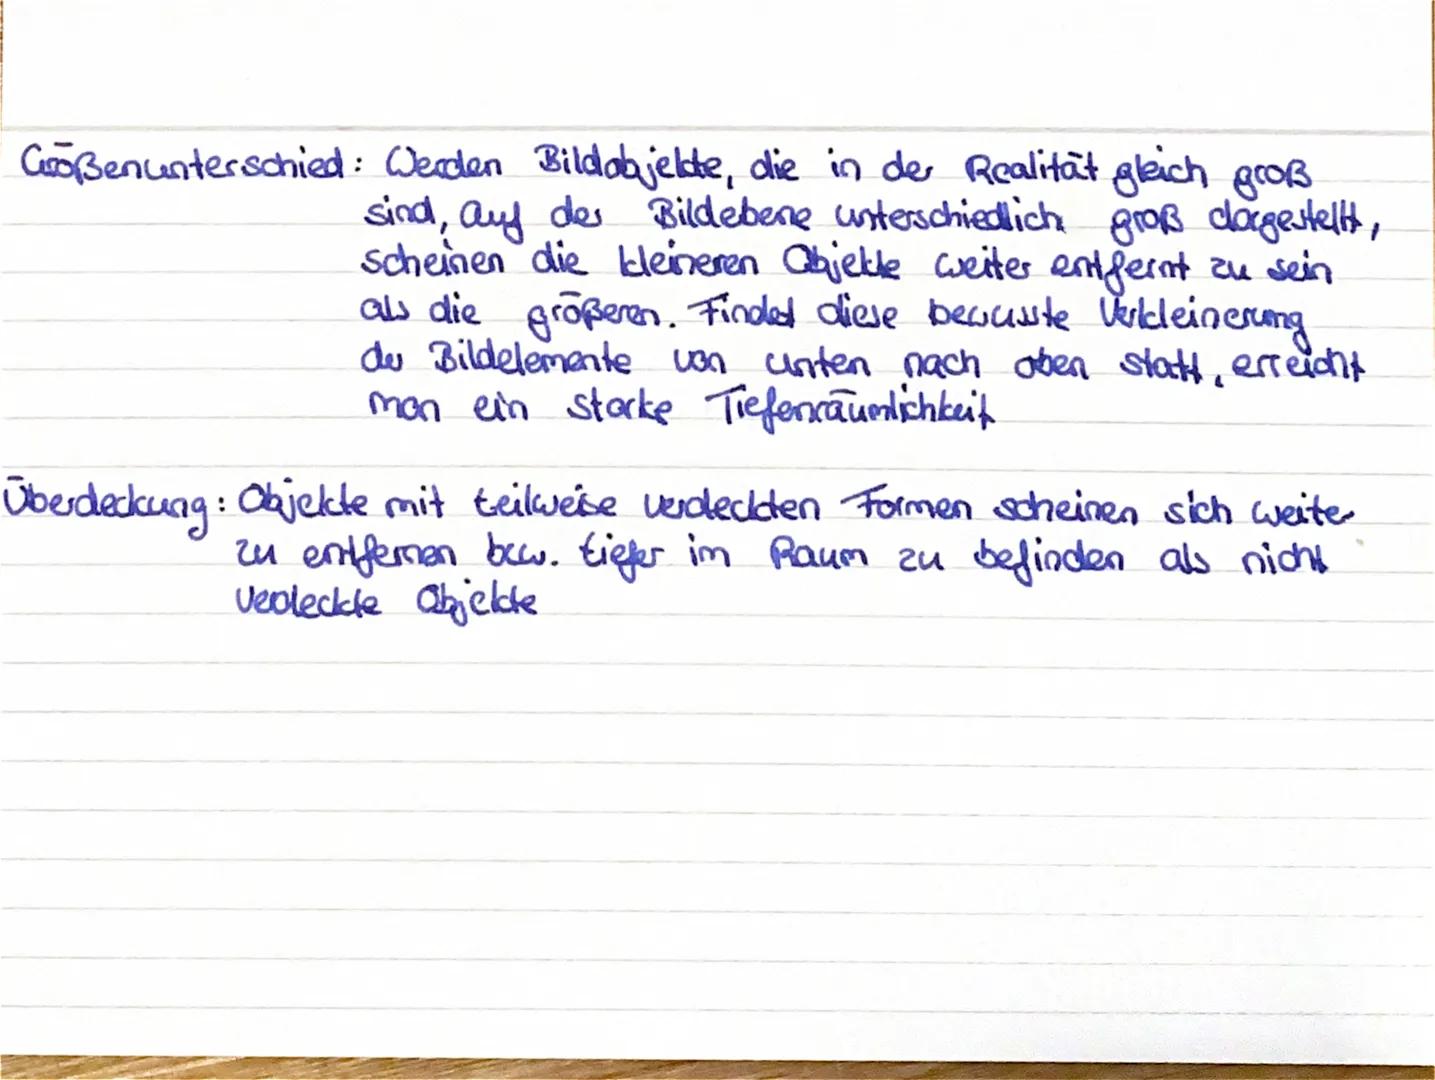 Größenunterschied: Werden Bildobjekte, die in der Realität gleich groß
sind, auf der Bildebene unterschiedlich groß dargestellt,
scheinen die kleineren Objekte weiter entfernt zu sein
als die größeren. Findet diese bewusste Verkleinerung
der Bildelemente von unten nach oben statt, erreicht
man ein starke Tiefenräumlichkeit
Überdeckung: Objekte mit teilweise verdeckten Formen scheinen sich weiter
zu entfernen bzw. tiefer im Raum zu befinden als nicht
verdeckte Objekte